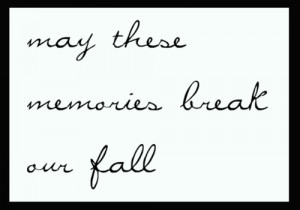 may these
memories break
our fall